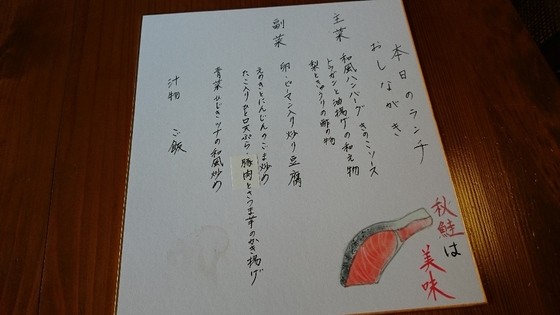 本日のランチ
おしながき
主菜
和風ハンバーグ きのこソース
トウガンと油揚げの和え物
梨ときゅうりの酢の物
副菜
卵・ピーマン入り炒り豆腐
えのきとにんじんのごま炒め
豚肉とさつま芋のかき揚げ
青菜 ひじき ツナの和風炒め
汁物 ご飯
秋鮭は
美味